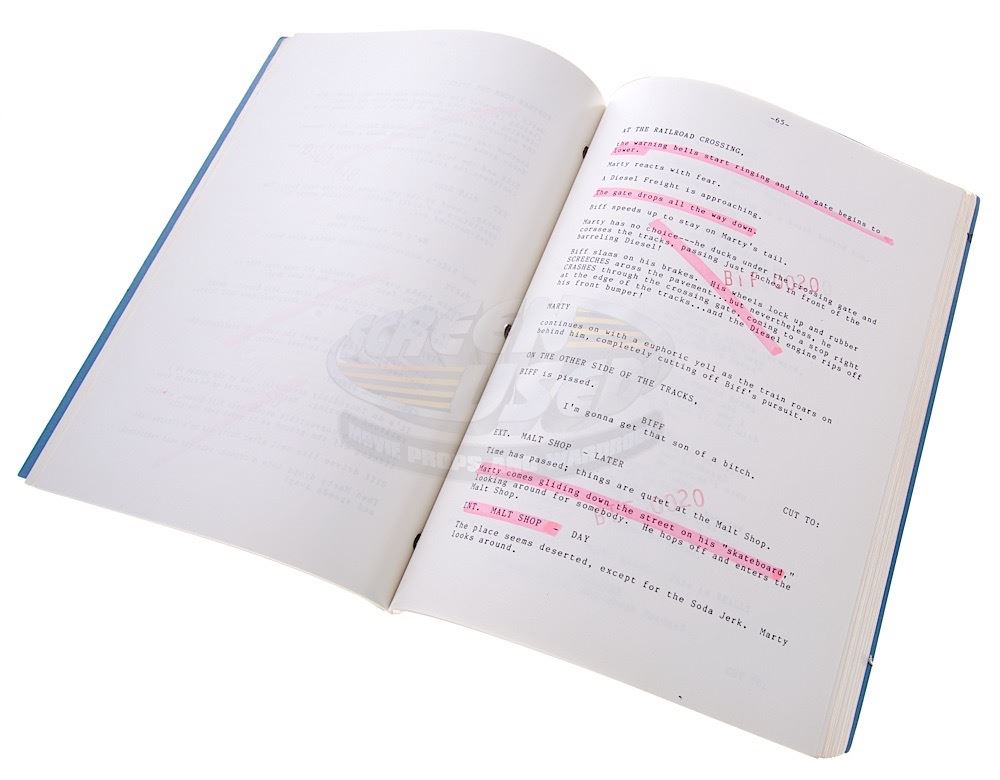 -65-
AT THE RAILROAD CROSSING,
the warning bells start ringing and the gate begins to
lower.
Marty reacts with fear.
A Diesel Freight is approaching.
The gate drops all the way down.
Biff speeds up to stay on Marty's tail.
Marty has no choice---he ducks under the crossing gate and
corsses the tracks, passing just inches in front of the
barreling Diesel!
Biff slams on his brakes. His wheels lock up and rubber
SCREECHES aross the pavement...but nevertheless, he
CRASHES through the crossing gate, coming to a stop right
at the edge of the tracks...and the Diesel engine rips off
his front bumper!
BTF 0020
MARTY
continues on with a euphoric yell as the train roars on
behind him, completely cutting off Biff's pursuit.
ON THE OTHER SIDE OF THE TRACKS,
BIFF is pissed.
BIFF
I'm gonna get that son of a bitch.
CUT TO:
EXT. MALT SHOP - LATER
Time has passed; things are quiet at the Malt Shop.
Marty comes gliding down the street on his "skateboard,"
looking around for somebody. He hops off and enters the
Malt Shop.
BTF 0020
INT. MALT SHOP - DAY
The place seems deserted, except for the Soda Jerk. Marty
looks around.
SCREEN
USED
MOVIE PROPS AND WARDROBE